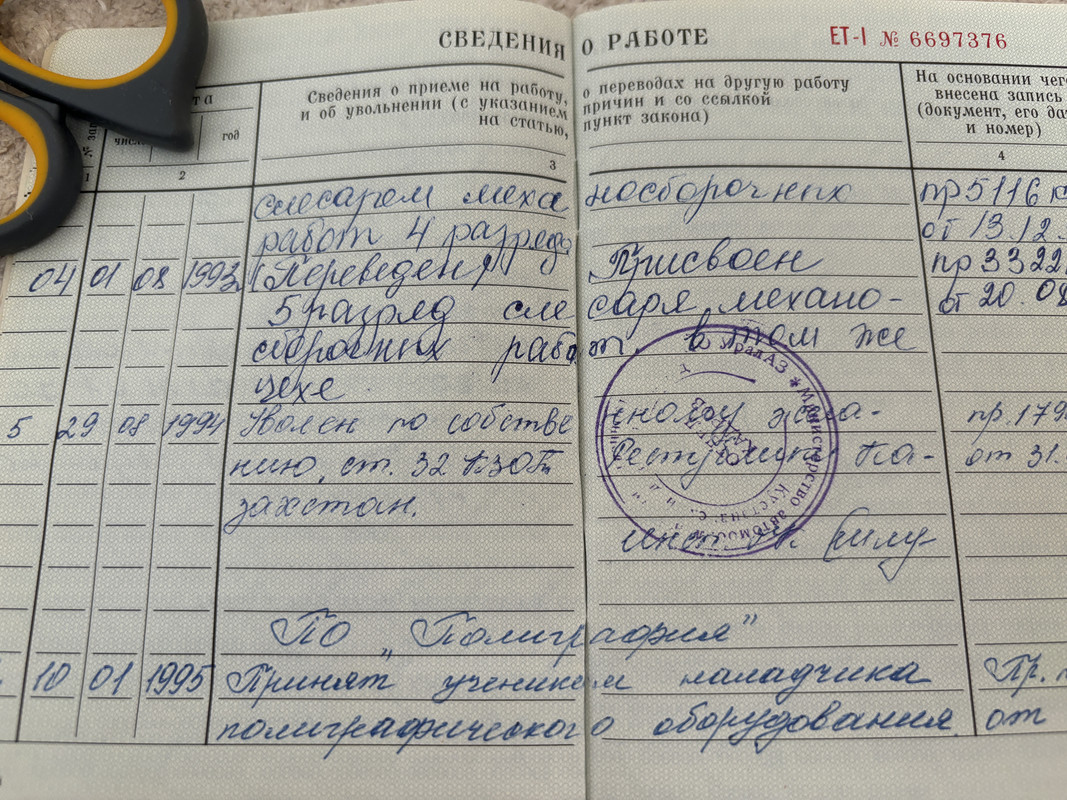 СВЕДЕНИЯ О РАБОТЕ
ЕТ-I № 6697376
та
число
год
Сведения о приеме на работу, о переводах на другую работу
и об увольнении (с указанием причин и со ссылкой
на статью, пункт закона)
На основании чего
внесена запись
(документ, его дата
и номер)
1
2
3
4
слесарем механосборочных пр 5116 к
работ 4 разряда от 13.12.
04 01 08 1993 (Переведен) Присвоен пр 3322
5 разряд слесаря механо- от 20.08
сборочных работ. в том же
цехе
5 29 08 1994 Уволен по собственному жела- пр. 179
нию, ст. 32 КЗОТ Республики Ка- от 31.
захстан.
УралАЗ * Министерство автомо
Кустана
ПО "Полиграфия"
10 01 1995 Принят учеником наладчика Пр.
полиграфического оборудования. от